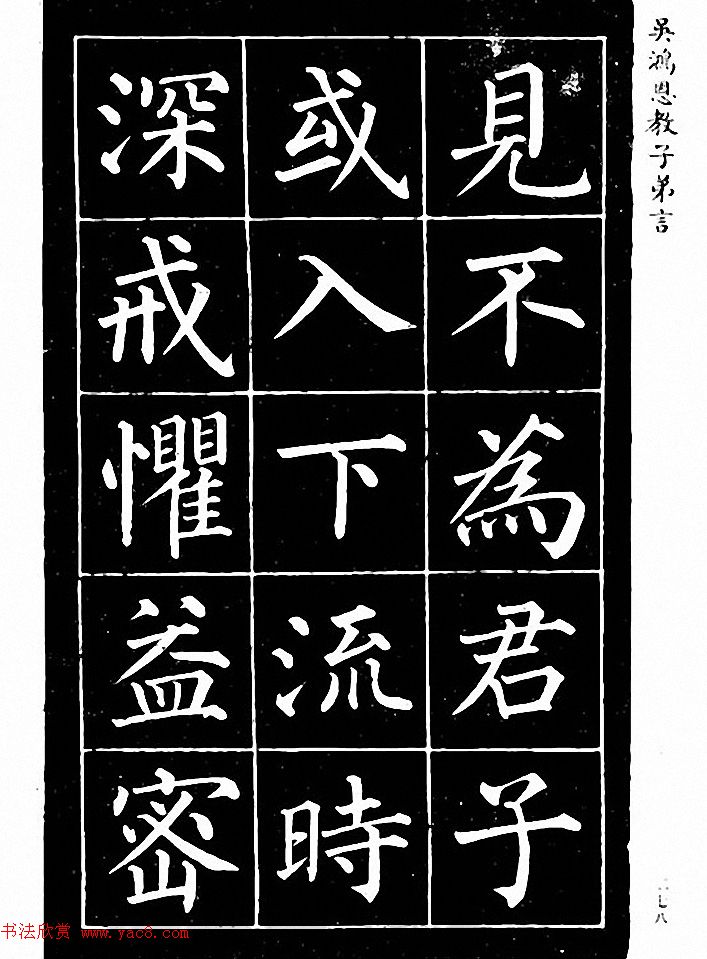 吳鴻恩教子弟言
見不為君子
或入下流時
深戒懼益密
书法欣赏 www.yac8.com